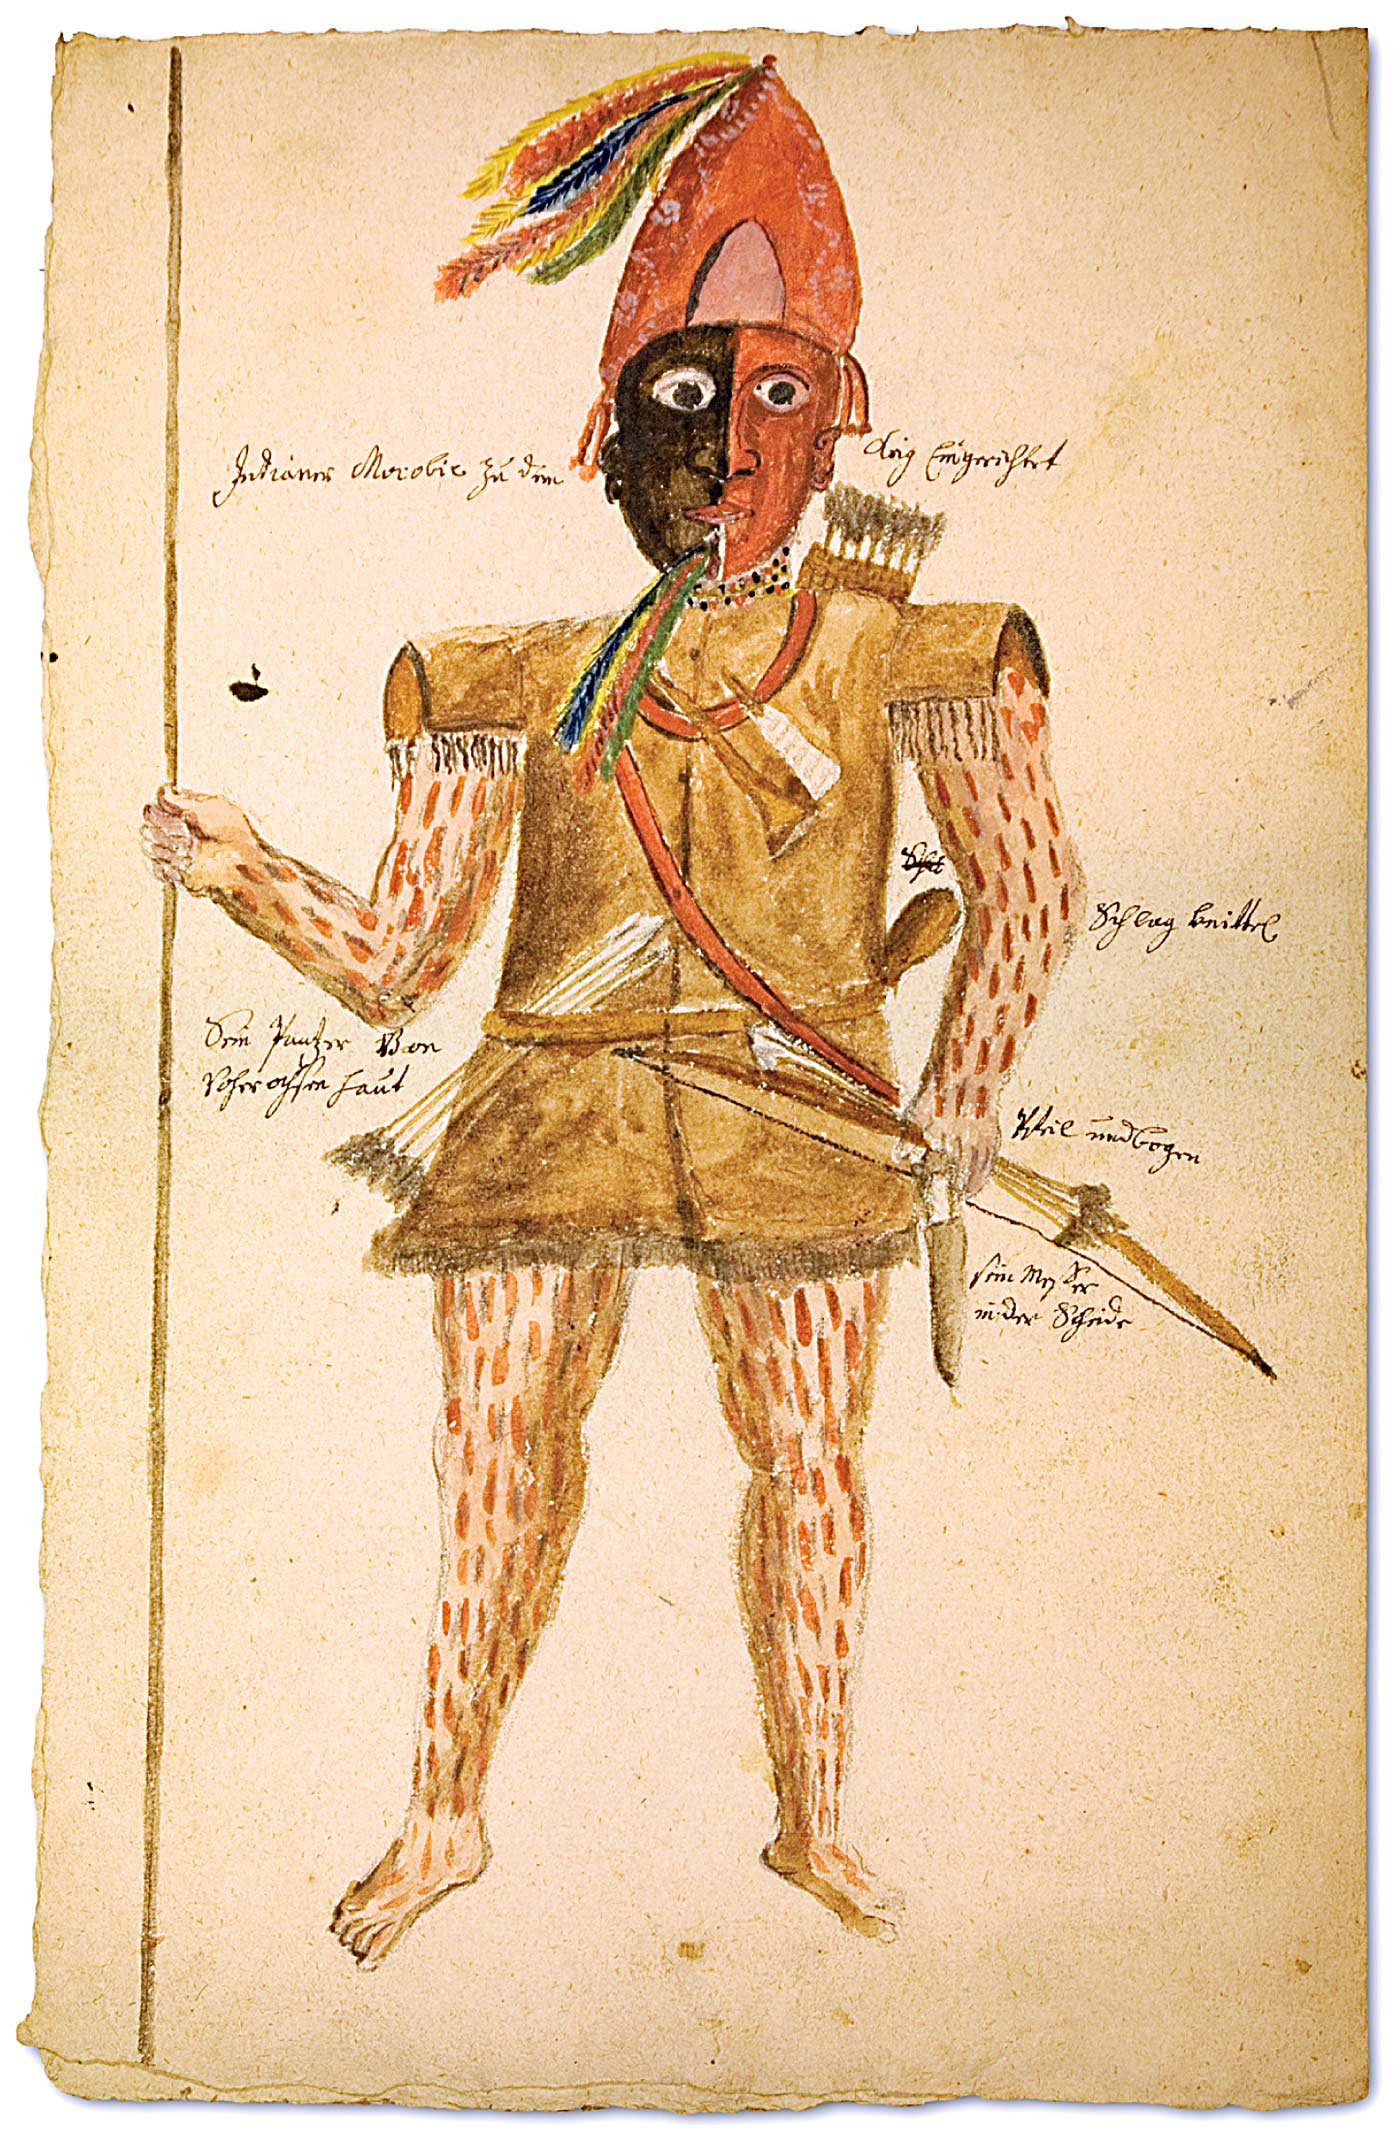 Indianer Mocobit zu dem Krig Eingerichtet
Schlag kníttel
Sein Pantzer Von
Roher ochsen haut
Pfeil und bogen
sein Messer
in der Scheide